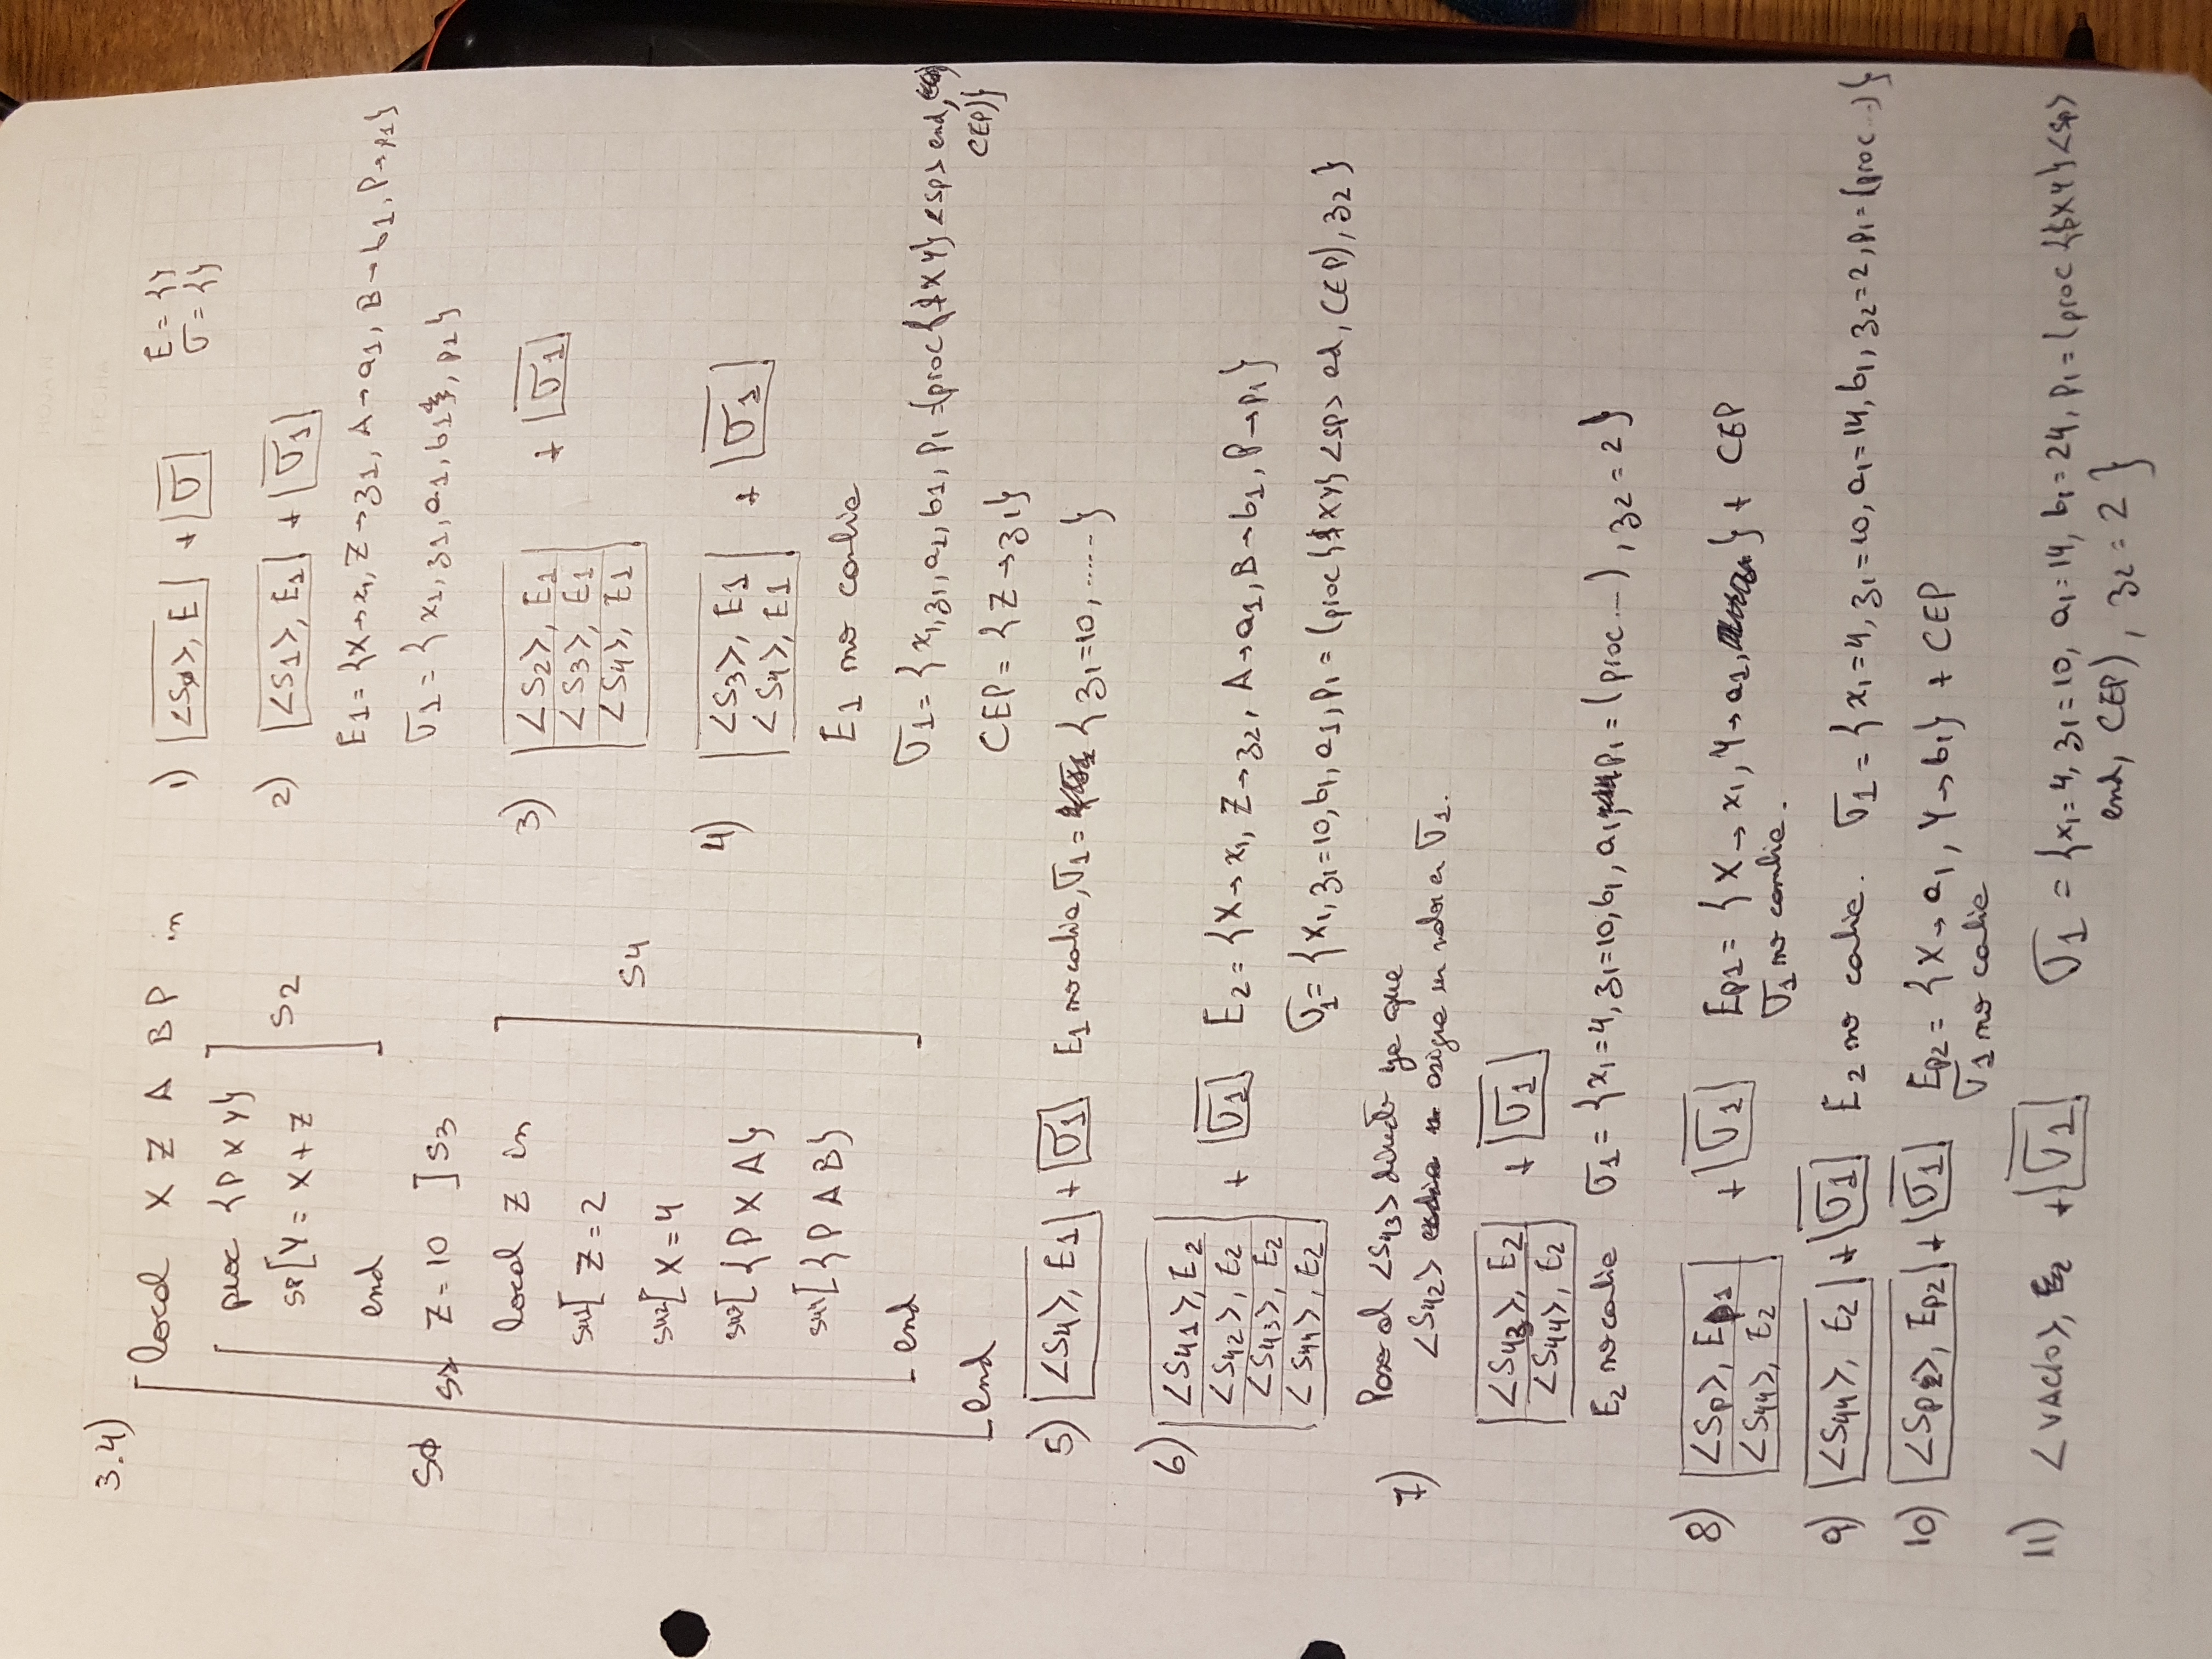 3.4)
local X Z A B P in
proc {P X Y}
SP[Y = X + Z
]S2
end
S0
S1
Z = 10 ]S3
local Z in
S41[ Z = 2
S42[ X = 4
]S4
S43[ {P X A}
S44[ {P A B}
end
end
1) <S0>, E + σ
E = {}
σ = {}
2) <S1>, E1 + σ1
E1 = {X→x1, Z→z1, A→a1, B→b1, P→p1}
σ1 = {x1, z1, a1, b1, p1}
3) <S2>, E1 + σ1
<S3>, E1
<S4>, E1
4) <S3>, E1 + σ1
<S4>, E1
E1 no cambia
σ1 = {x1, z1, a1, b1, p1 = (proc {$ X Y} <SP> end,
CEP)}
CEP = {Z→z1}
5) <S4>, E1 + σ1 E1 no cambia, σ1 = { z1 = 10, ..... }
6) <S41>, E2
<S42>, E2 + σ1 E2 = {X→x1, Z→z2, A→a1, B→b1, P→p1}
<S43>, E2
<S44>, E2
σ1 = {x1, z1=10, b1, a1, p1 = (proc {$ X Y} <SP> end, CEP), z2 }
7) Paso al <S43> directo ya que
<S42> asigna un valor en σ1.
<S43>, E2 + σ1
<S44>, E2
E2 no cambia σ1 = {x1=4, z1=10, b1, a1, p1 = (proc ...), z2 = 2}
8) <Sp>, Ep1 + σ1 Ep1 = {X→x1, Y→a1, } + CEP
<S44>, E2
σ1 no cambia.
9) <S44>, E2 + σ1 E2 no cambia. σ1 = {x1=4, z1=10, a1=14, b1, z2=2, p1=(proc ...)}
10) <Sp2>, Ep2 + σ1 Ep2 = {X→a1, Y→b1} + CEP
σ1 no cambia
11) <VACIO>, E2 + σ1 σ1 = {x1=4, z1=10, a1=14, b1=24, p1=(proc {$ X Y} <Sp>
end, CEP), z2 = 2 }